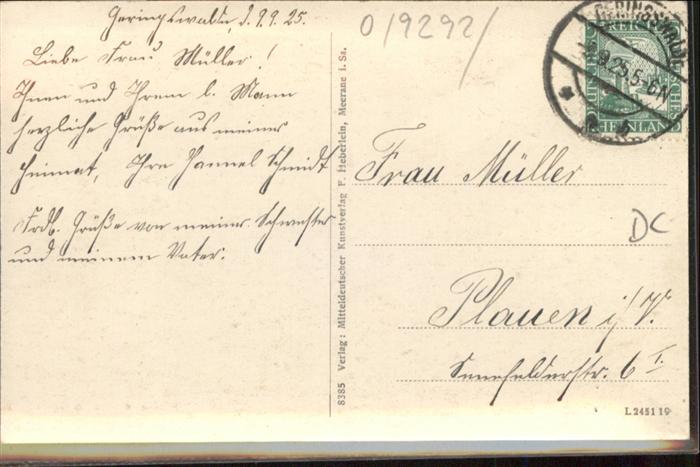 Geringswalde, d. 9.9.25.
Liebe Frau Müller!
Ihnen und Ihrem l. Mann
herzliche Grüße aus meiner
Heimat, Ihre Hannel Schmidt
Frdl. Grüße von meiner Schwester
und meinem Vater.
0/9292/
GERINGSWALDE
9.25.5-6N
DEUTSCHES REICH
RHEINLAND
Frau Müller
DC
Plauen i/V.
Senefelderstr. 6 I.
8385 Verlag: Mitteldeutscher Kunstverlag F. Heberlein, Meerane i. Sa.
L 2451 19